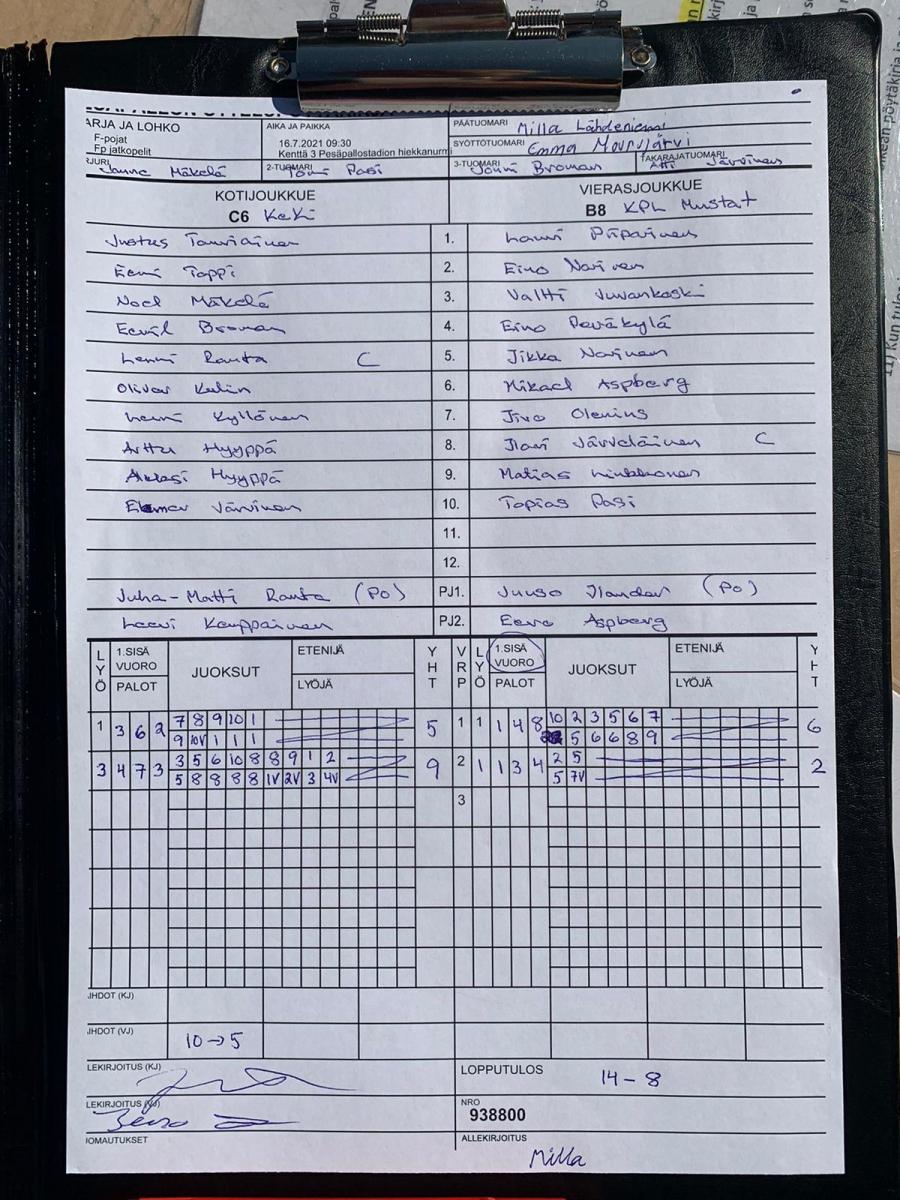 ARJA JA LOHKO
F-pojat
Fp jatkopelit
AIKA JA PAIKKA
16.7.2021 09:30
Kenttä 3 Pesäpallostadion hiekkanurmi
PÄÄTUOMARI Milla Lähdeniemi
SYÖTTÖTUOMARI Emma
RJURI Janne Mäkelä
2-TUOMARI Tomi Pasi
3-TUOMARI Jouni Broman
TAKARAJATUOMARI Atti Järvinen
KOTIJOUKKUE
C6 KeKi
VIERASJOUKKUE
B8 KPL Mustat
Justus Tanviainen 1. Lauri Piipainen
Eemi Toppi 2. Eino Narinen
Noel Mäkelä 3. Valtti Juvankoski
Eemil Broman 4. Eino Peräkylä
Lenni Ranta C 5. Jikka Narinen
Oliver Kelin 6. Mikael Aspberg
Lenni Kyllönen 7. Jivo Olenius
Arttu Hyyppä 8. Ilari Järveläinen C
Aleksi Hyyppä 9. Matias Linkkonen
Elmer Järvinen 10. Topias Pasi
11.
12.
Juha-Matti Ranta (PO) PJ1. Juuso Ilander (PO)
Leevi Kauppainen PJ2. Eero Aspberg
LYÖ 1.SISÄ VUORO PALOT JUOKSUT ETENIJÄ LYÖJÄ YHT VRP LYÖ 1.SISÄ VUORO PALOT JUOKSUT ETENIJÄ LYÖJÄ YHT
1 3 6 2 7 8 9 10 1 5 1 1 1 4 8 10 2 3 5 6 7 6
9 10V 1 1 1 5 6 6 8 9
3 4 7 3 3 5 6 10 8 8 9 1 2 9 2 1 1 3 4 2 5 2
5 8 8 8 8 1V 2V 3 4V 5 7V
3
JHDOT (KJ)
JHDOT (VJ) 10→5
LEKIRJOITUS (KJ)
LOPPUTULOS 14-8
LEKIRJOITUS (VJ)
NRO
938800
IOMAUTUKSET
ALLEKIRJOITUS
Milla